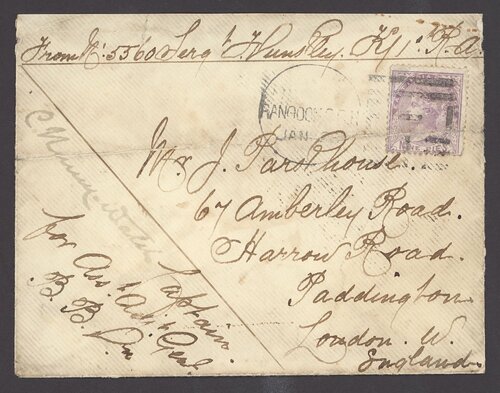 From No: 5560 Sergt Hunsley. K/1: R.A.
RANGOON
JAN
Mr. J. Parkhouse.
67 Amberley Road.
Harrow Road.
Paddington
London. W.
England.
Captain.
for Asst Adjt Genl.
B. B. Dn